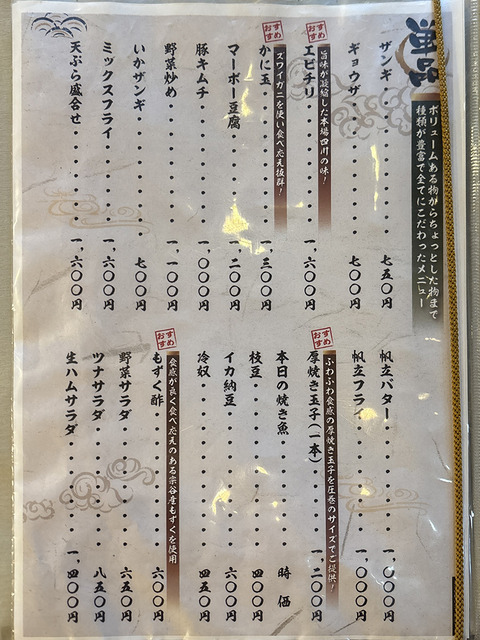 単品
ボリュームある物からちょっとした物まで
種類が豊富で全てにこだわったメニュー
ザンギ・・・・・・・七五〇円
ギョウザ・・・・・・・七〇〇円
おすすめ
旨味が凝縮した本場四川の味!
エビチリ・・・・・・・一、六〇〇円
おすすめ
ズワイガニを使い食べ応え抜群!
かに玉・・・・・・・一、三〇〇円
マーボー豆腐・・・・・・一、二〇〇円
豚キムチ・・・・・・・一、〇〇〇円
野菜炒め・・・・・・・一、一〇〇円
いかザンギ・・・・・・・七〇〇円
ミックスフライ・・・・・一、六〇〇円
天ぷら盛合せ・・・・・・一、六〇〇円
帆立バター・・・・・・・一、〇〇〇円
帆立フライ・・・・・・・一、〇〇〇円
おすすめ
ふわふわ食感の厚焼き玉子を圧巻のサイズでご提供!
厚焼き玉子(一本)・・・・一、二〇〇円
本日の焼き魚・・・・・・時価
枝豆・・・・・・・・・四〇〇円
イカ納豆・・・・・・・六〇〇円
冷奴・・・・・・・・・四五〇円
おすすめ
食感が良く食べ応えのある宗谷産もずくを使用
もずく酢・・・・・・・六〇〇円
野菜サラダ・・・・・・・六五〇円
ツナサラダ・・・・・・・八五〇円
生ハムサラダ・・・・・・一、四〇〇円